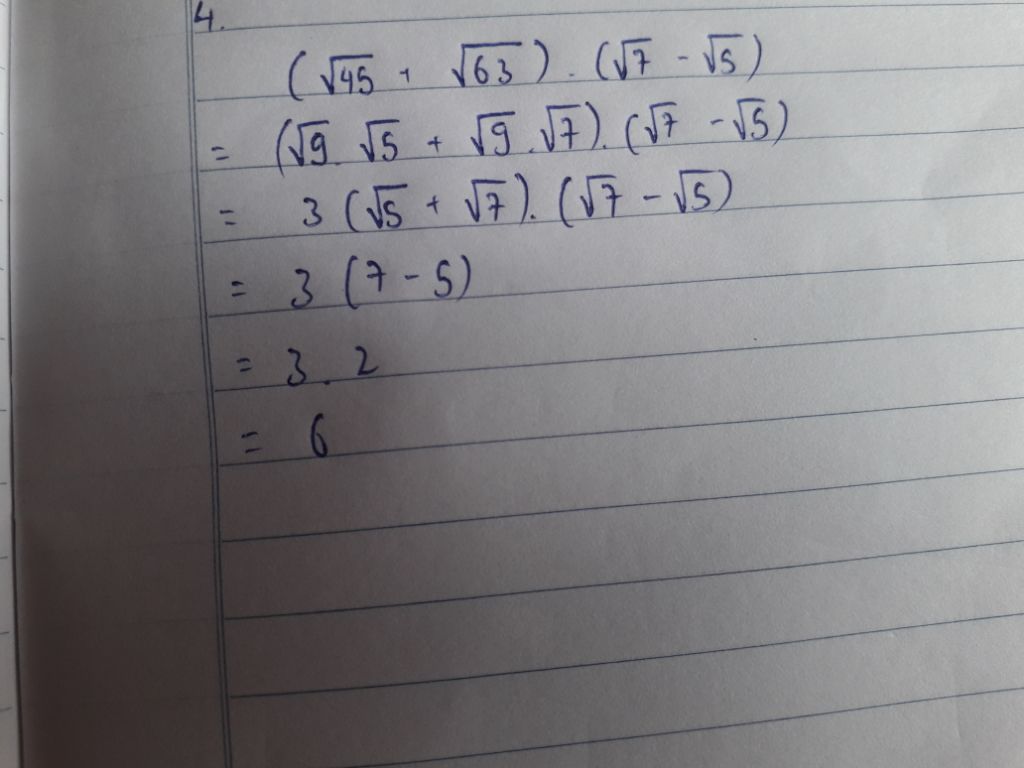 4.
(√45 + √63) . (√7 - √5)
= (√9 . √5 + √9 . √7) . (√7 - √5)
= 3 (√5 + √7) . (√7 - √5)
= 3 (7 - 5)
= 3 . 2
= 6